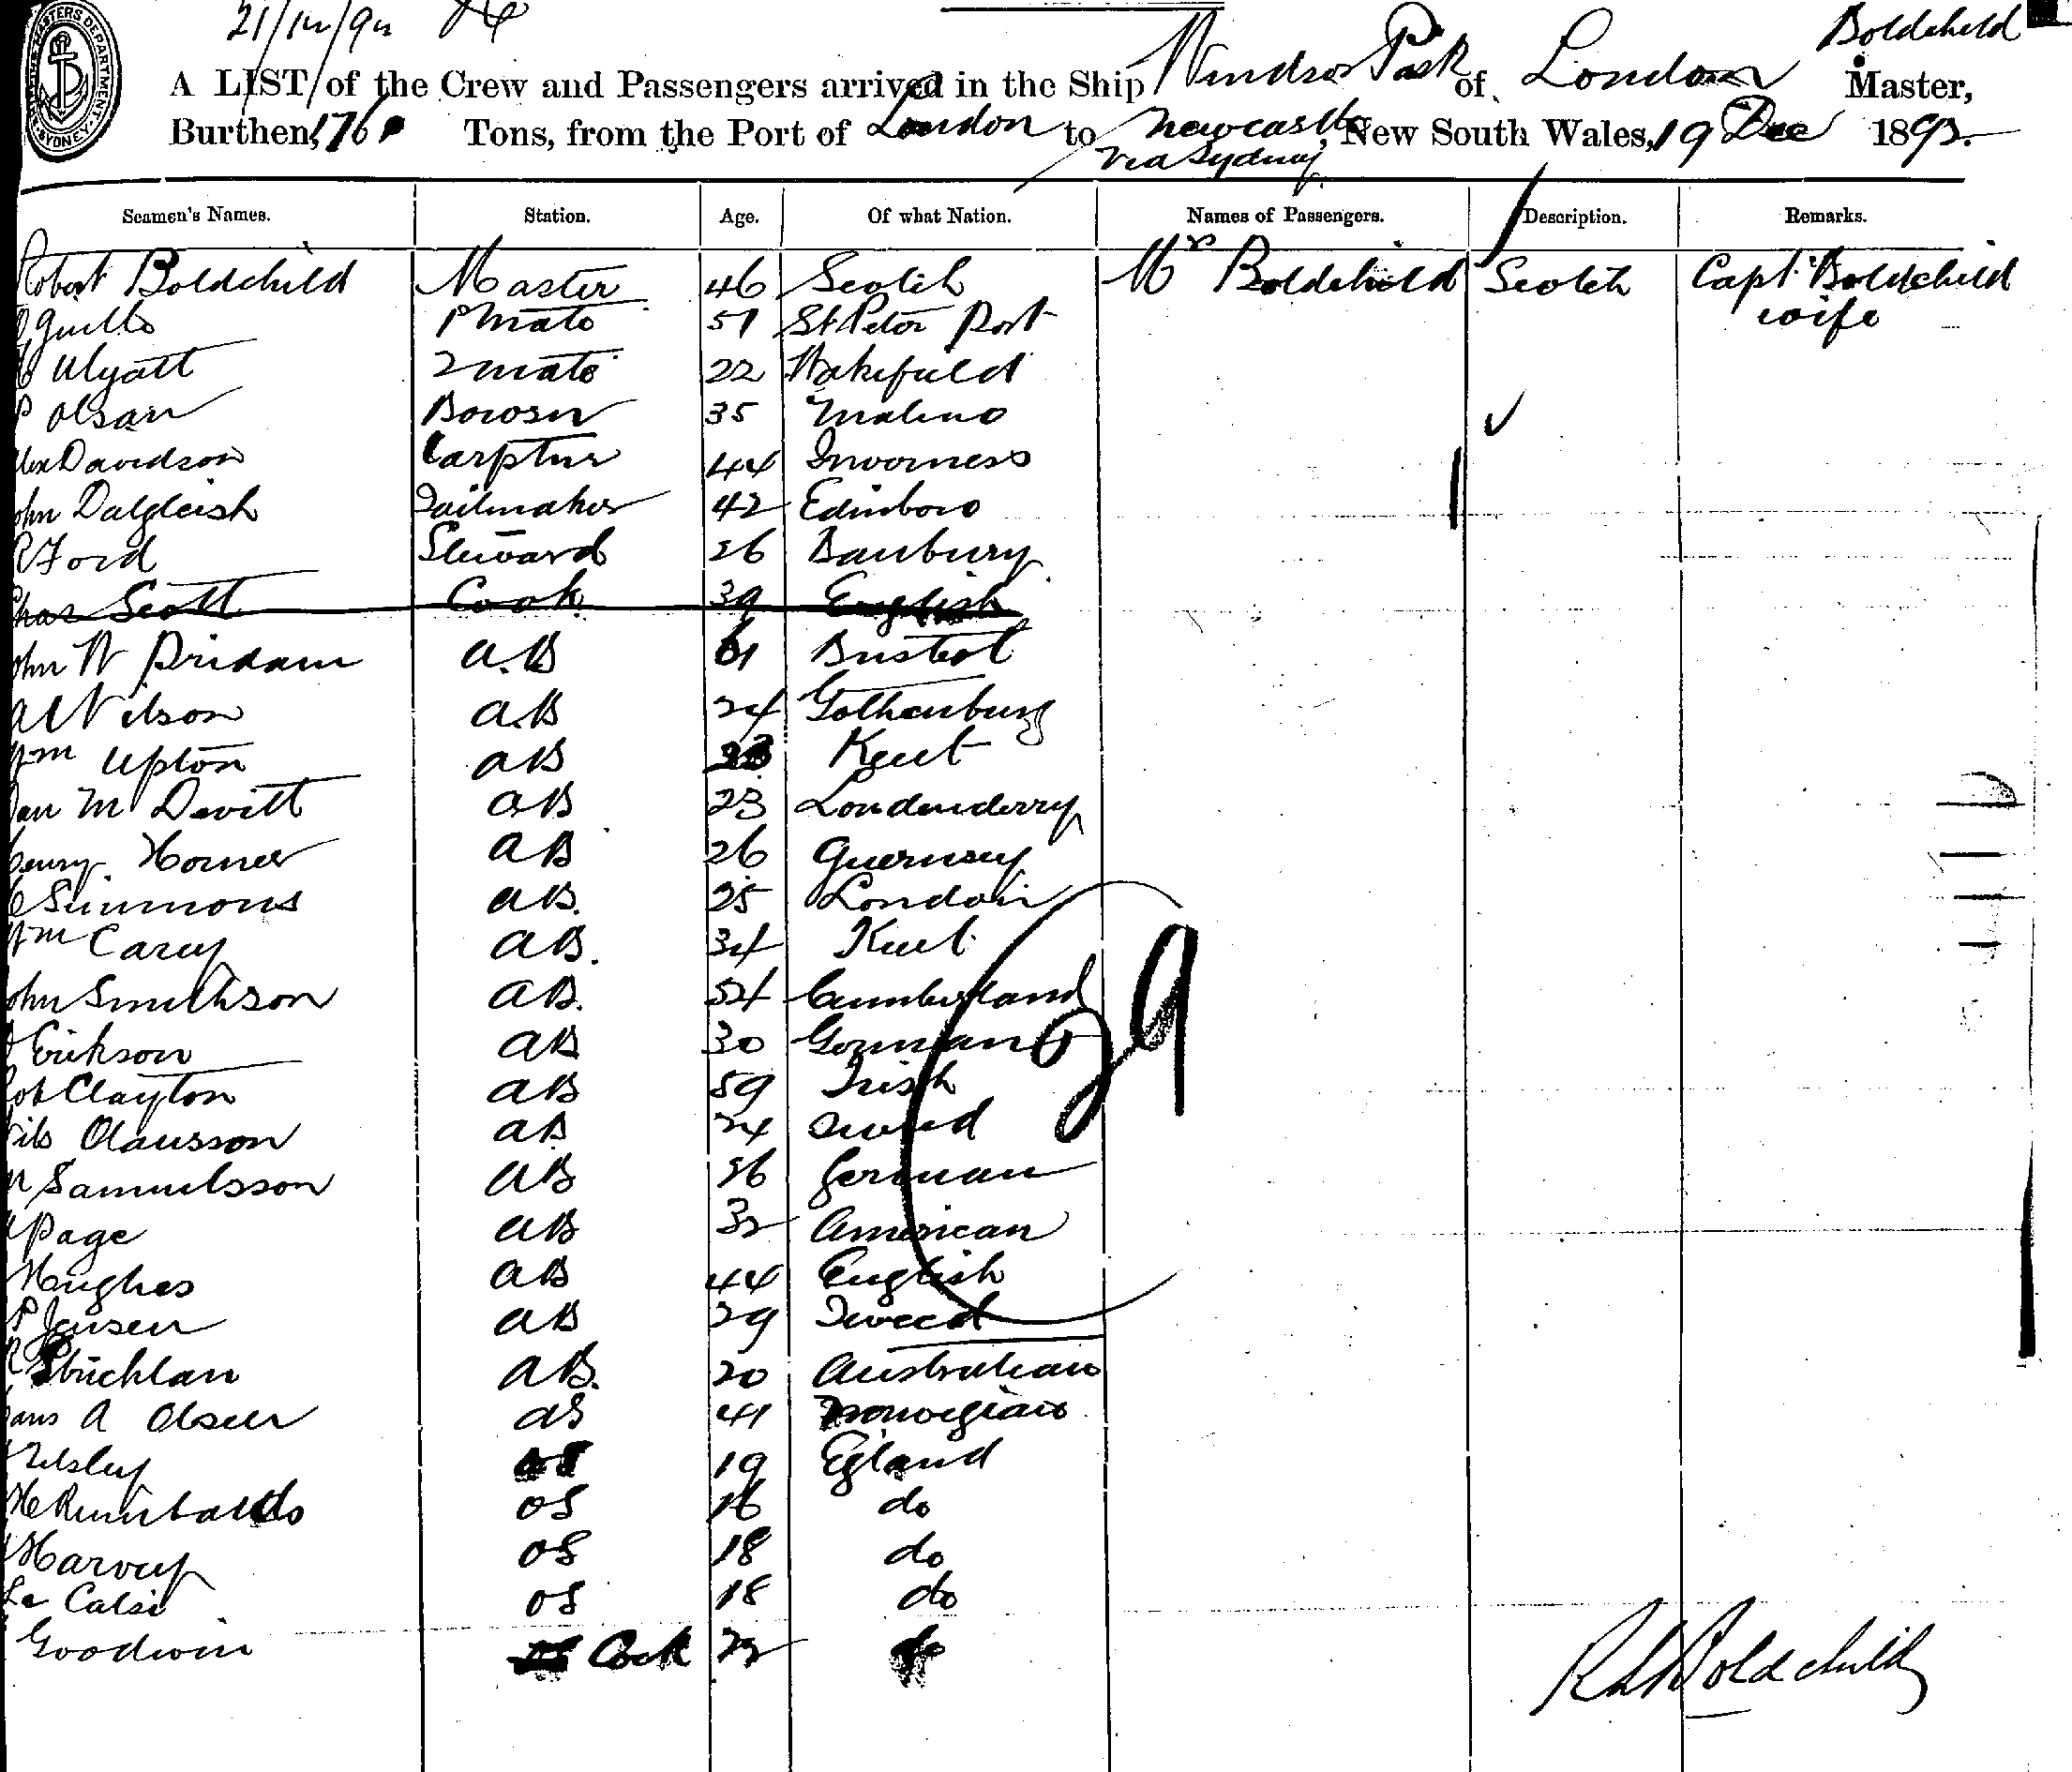 Boldchild
A LIST of the Crew and Passengers arrived in the Ship Windsor Park of London Master,
Burthen, 176 Tons, from the Port of London to Newcastle, New South Wales, 19 Dec 189
via Sydney
Seamen's Names. Station. Age. Of what Nation. Names of Passengers. Description. Remarks.
Robert Boldchild Master 46 Scotch Mrs Boldchild Scotch Capt. Boldchild
wife
Guille 1 Mate 51 St Peter Port
Wyatt 2 mate 22 Wakefield
P Olsan Bowsn 35 Malmo
Alex Davidson Carptnr 44 Inverness
John Dalgleish Sailmaker 42 Edinboro
R Ford Steward 26 Banbury
Chas Scott Cook 39 English
John W Pridam A.B 61 Bristol
A Nilson A.B 24 Gothenburg
Wm Upton AB Kent
Dan Mc Devitt AB 23 Londenderry
Henry Horner AB 26 Guernsey
C Simmons AB. 25 London
Wm Carey AB. 34 Kent
John Smithson AB. 54 Cumberland
Erikson AB 30 German 29
Rob Clayton AB 59 Irish
Nils Olausson AB 24 Sweed
Samuelsson AB 36 German
Page AB 32 American
Hughes AB 44 English
P Jensen AB 29 Sweed
Strichlan AB. 20 Australian
Hans A Olsen AS 41 Norwegian
Telsley 19 Egland
H Rumbalds OS 16 do
Harvey OS 18 do
Le Calse OS 18 do
Goodwin Cook 22 do
Boldchild